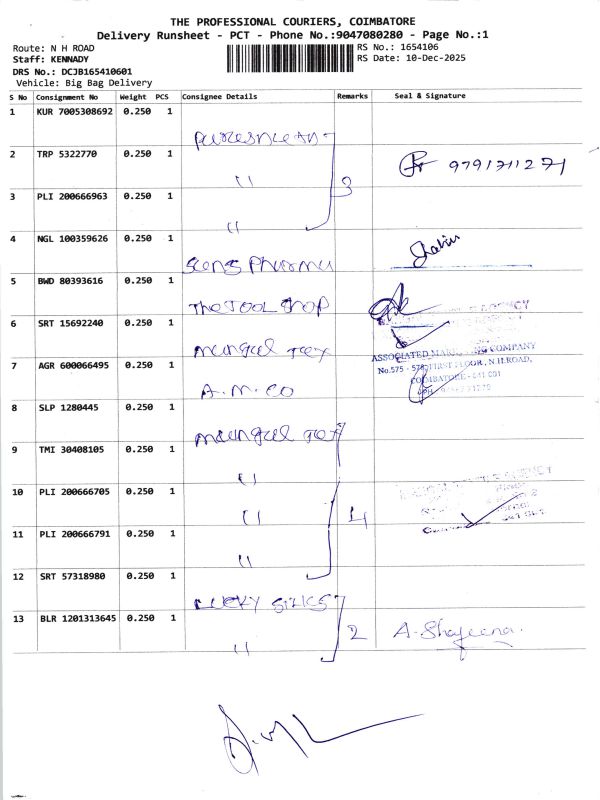 THE PROFESSIONAL COURIERS, COIMBATORE
Delivery Runsheet - PCT - Phone No.:9047080280 - Page No.:1
Route: N H ROAD
RS No.: 1654106
Staff: KENNADY
RS Date: 10-Dec-2025
DRS No.: DCJB165410601
Vehicle: Big Bag Delivery
S No Consignment No Weight PCS Consignee Details Remarks Seal & Signature
1 KUR 7005308692 0.250 1
2 TRP 5322770 0.250 1 " 3 9791711271
3 PLI 200666963 0.250 1 "
4 NGL 100359626 0.250 1 Pharma
5 BWD 80393616 0.250 1 The Tool Shop
6 SRT 15692240 0.250 1 Mangal Tex
ASSOCIATED MARKETING COMPANY
No.575 - 576, FIRST FLOOR, N.H.ROAD,
COIMBATORE - 641 001
7 AGR 600066495 0.250 1 A.M.CO
8 SLP 1280445 0.250 1 Mangal Tex
9 TMI 30408105 0.250 1 "
10 PLI 200666705 0.250 1 " 4
11 PLI 200666791 0.250 1 "
12 SRT 57318980 0.250 1 Lucky Silks
13 BLR 1201313645 0.250 1 " 2 A. Shajeena